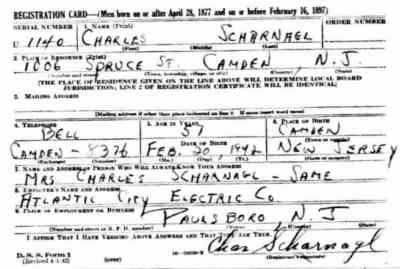 REGISTRATION CARD—(Men born on or after April 28, 1877 and on or before February 16, 1897)
SERIAL NUMBER 1. NAME (Print) ORDER NUMBER
U 1140 CHARLES SCHARNAGL
(First) (Middle) (Last)
2. PLACE OF RESIDENCE (Print)
1006 SPRUCE ST. CAMDEN, N.J.
(Number and street) (Town, township, village, or city) (County) (State)
[THE PLACE OF RESIDENCE GIVEN ON THE LINE ABOVE WILL DETERMINE LOCAL BOARD
JURISDICTION; LINE 2 OF REGISTRATION CERTIFICATE WILL BE IDENTICAL]
3. MAILING ADDRESS
[Mailing address if other than place indicated on line 2. If same insert word same]
4. TELEPHONE 5. AGE IN YEARS 6. PLACE OF BIRTH
BELL 57 CAMDEN
DATE OF BIRTH (Town or county)
CAMDEN - 8376 FEB. 20, 1942 NEW JERSEY
(Exchange) (Number) (Mo.) (Day) (Yr.) (State or country)
7. NAME AND ADDRESS OF PERSON WHO WILL ALWAYS KNOW YOUR ADDRESS
MRS CHARLES SCHARNAGL - SAME
8. EMPLOYER'S NAME AND ADDRESS
ATLANTIC CITY ELECTRIC CO.
9. PLACE OF EMPLOYMENT OR BUSINESS
PAULSBORO N.J
(Number and street or R. F. D. number) (Town) (County) (State)
I AFFIRM THAT I HAVE VERIFIED ABOVE ANSWERS AND THAT THEY ARE TRUE.
D. S. S. Form 1
(Revised 4-1-42) (over) Chas Scharnagl